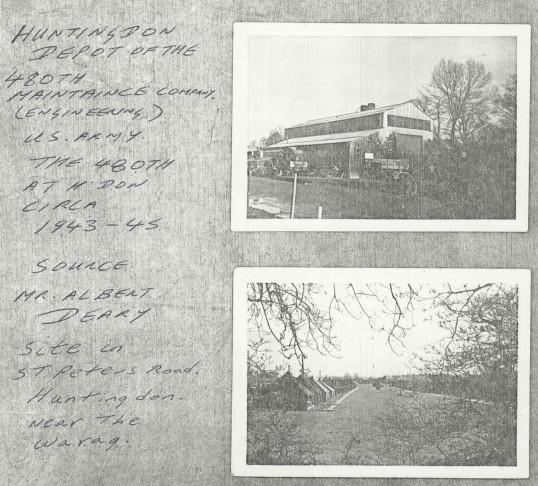 HUNTINGDON
DEPOT OF THE
480TH
MAINTAINCE COMPANY.
(ENGINEERING)
U.S. ARMY.
THE 480TH
AT H'DON
CIRCA
1943-45
SOURCE
MR. ALBERT
DEARY
Site in
ST Peters Road.
Huntingdon.
Near The
Warag.